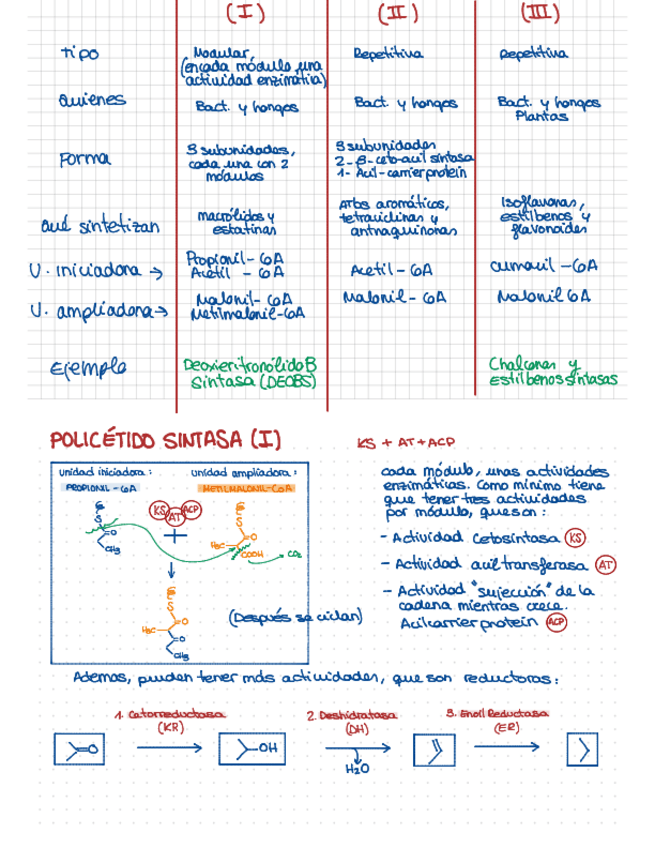 (I) (II) (III)
tipo
Modular,
(en cada módulo, una
actividad enzimática)
Repetitiva
Repetitiva
Quienes
Bact. y hongos
Bact. y hongos
Bact. y hongos
Plantas
Forma
3 subunidades,
cada una con 2
módulos
3 subunidades
2-β-ceto-acil sintasa
1-Acil-carrier protein
Qué sintetizan
macrólidos y
estatinas
Arbs aromáticos,
tetraciclinas y
antraquinonas
Isoflavonas,
estilbenos y
flavonoides
U. iniciadora →
Propionil-CoA
Acetil - CoA
Acetil - CoA
cumaril-CoA
U. ampliadora →
Malonil-CoA
Metilmalonil-CoA
Malonil-CoA
Malonil CoA
Ejemplo
Deoxieritronólido B
Sintasa (DEOBS)
Chalconas y
estilbenos sintasas
POLICÉTIDO SINTASA (I)
KS + AT + ACP
unidad iniciadora: unidad ampliadora:
PROPIONIL-CoA METILMALONIL-CoA
KS AT ACP
S
O
CH3
+
S
O
H3C
COOH
CO2
S
O
H3C
O
CH3
(Después se ciclan)
cada módulo, unas actividades
enzimáticas. Como mínimo tiene
que tener tres actividades
por módulo, que son:
- Actividad cetosintasa (KS)
- Actividad aciltransferasa (AT)
- Actividad "sujección" de la
cadena mientras crece.
Acilcarrier protein (ACP)
Ademas, pueden tener más actividades, que son reductoras:
1. Cetorreductasa
(KR)
2. Deshidratasa
(DH)
3. Enoil Reductasa
(ER)
O
OH
H2O